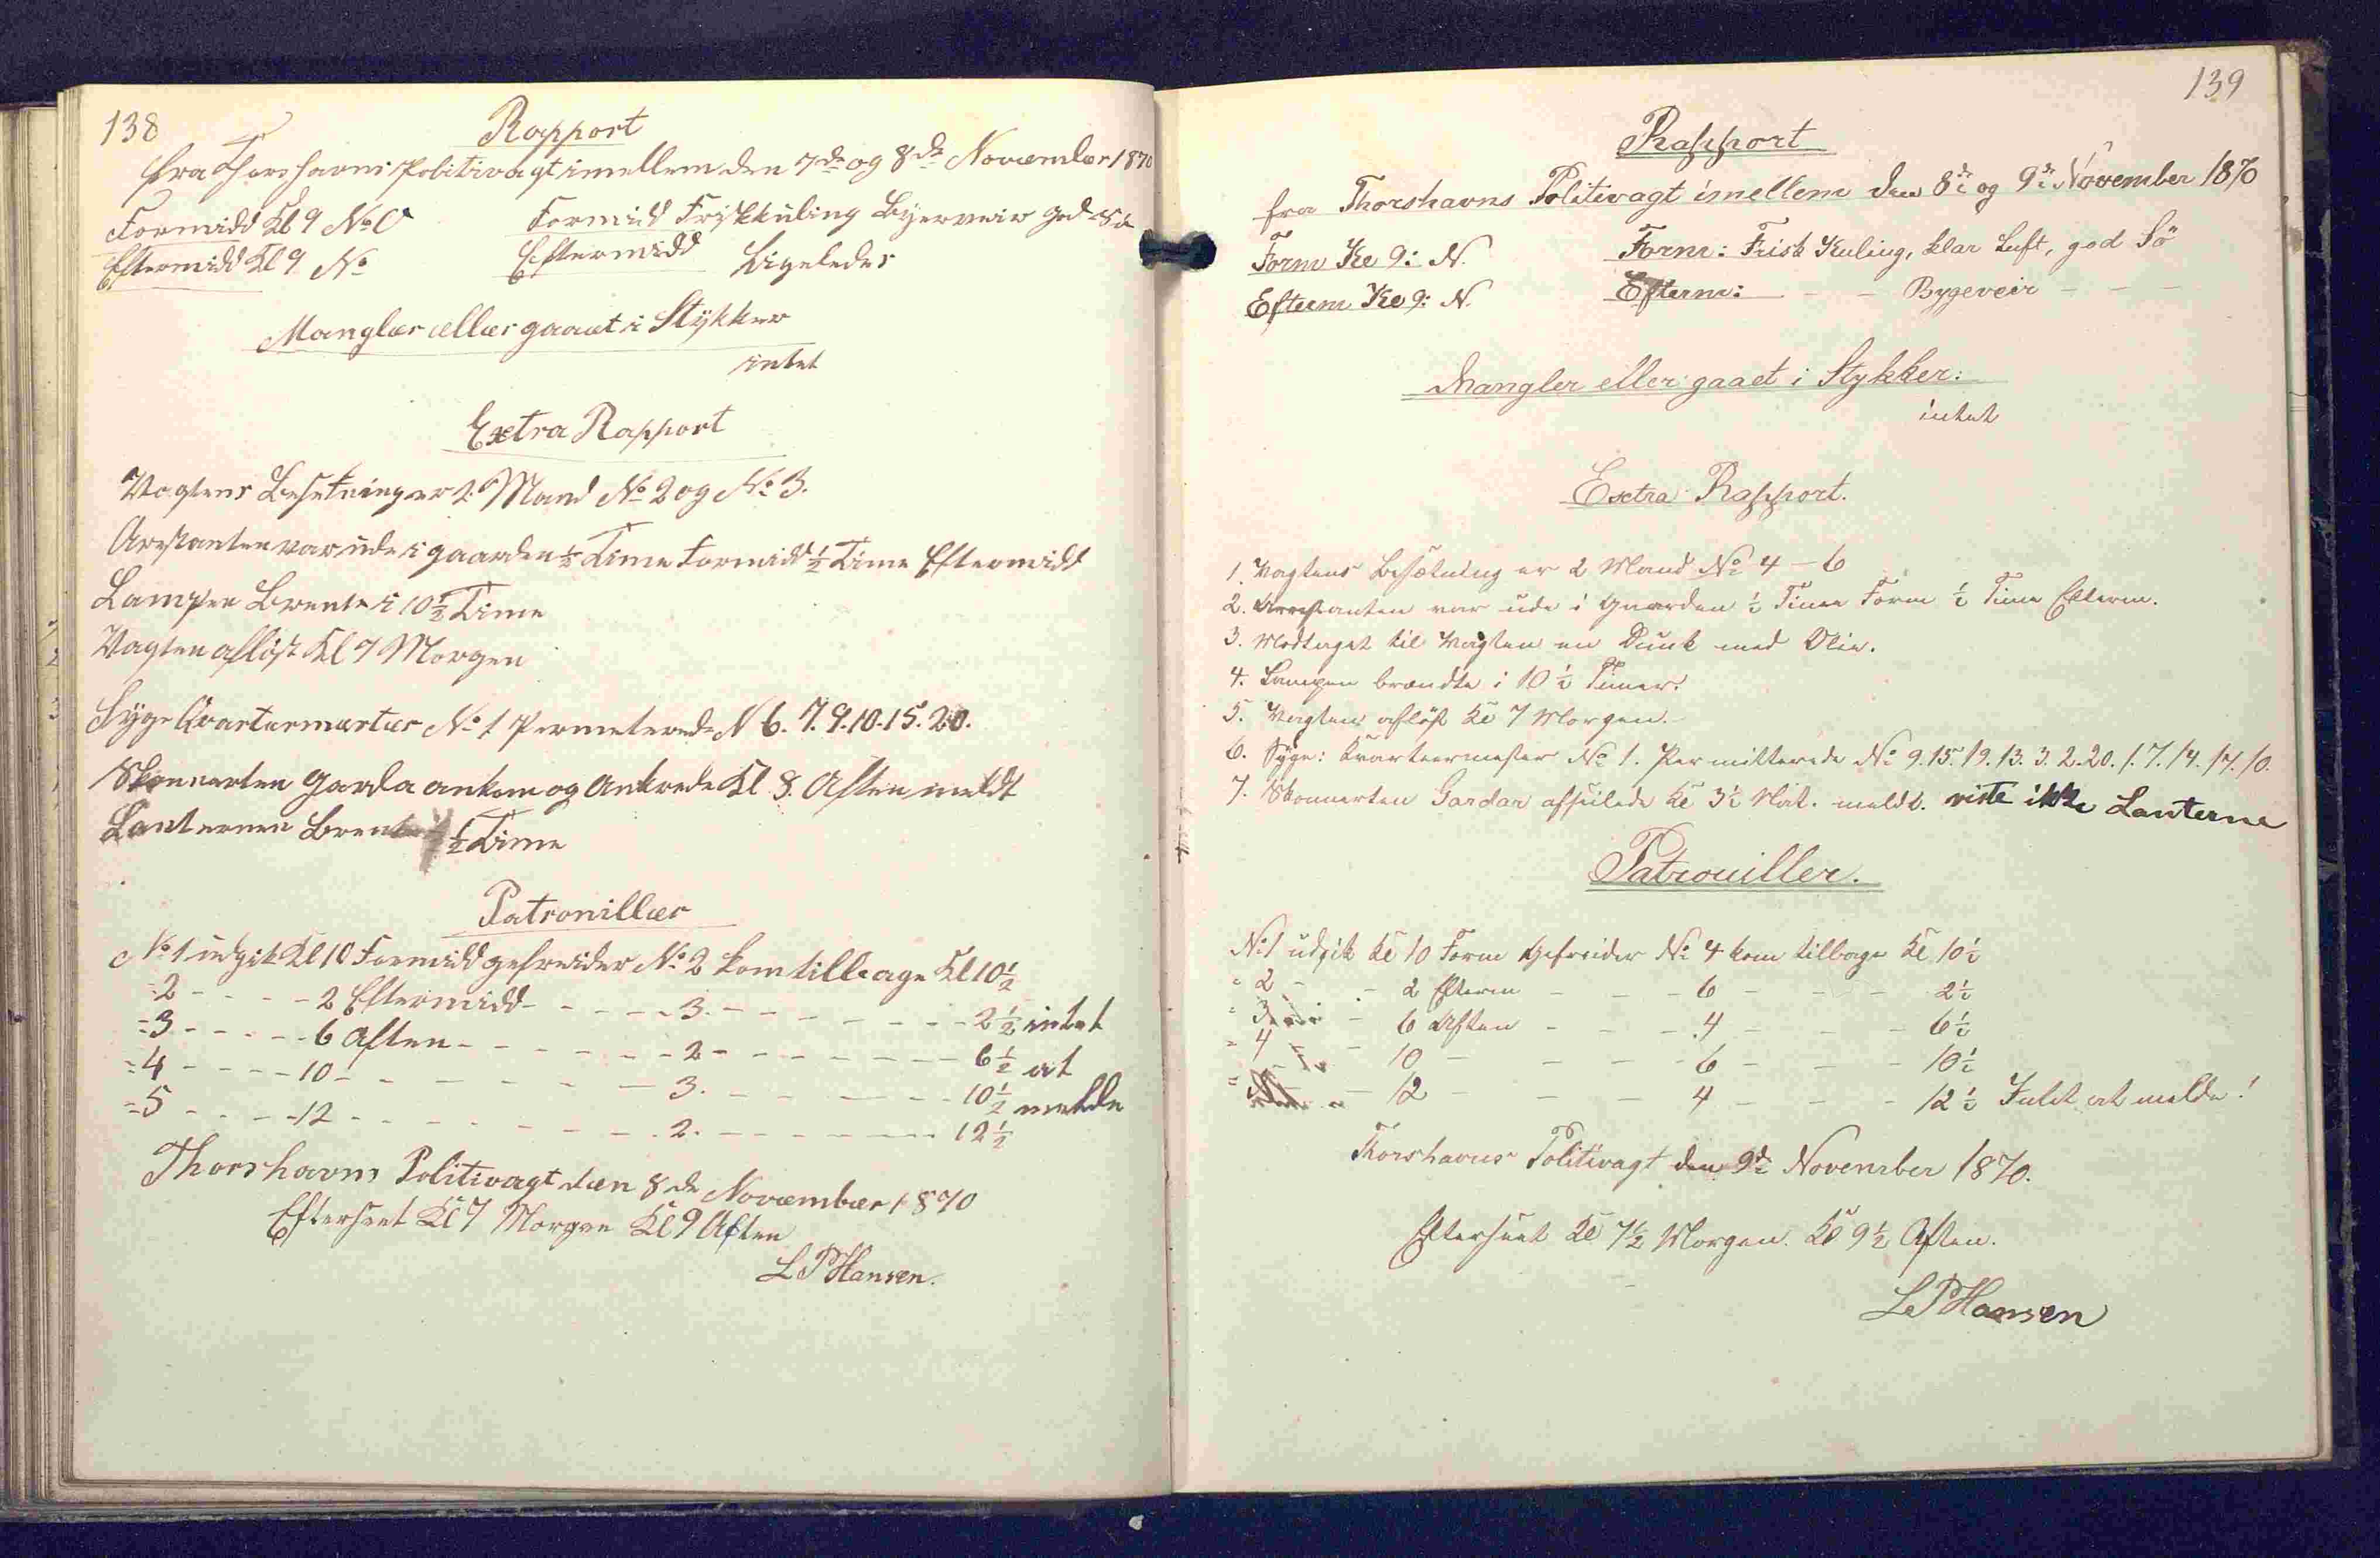 138
Rapport
fra Thorshavns Politivagt imellem den 7de og 8de November 1870
Formidd Kl 9 No O
Formidd Frisk kuling Byerveir god Sö
Eftermidd Kl 9 No
Eftermidd Ligeledes
Mangler eller gaaet i Stykker
intet
Extra Rapport
Vagtens Besetning er 2 Mand No 2 og No 3.
Arestanten var ude i gaarden ½ Time Formidd ½ Time Eftermidd
Lampen Brente i 10½ Time
Vagten aflöst Kl 7 Morgen
Syge Kvartermester No 1 Permeterede N 6. 7. 9. 10. 15. 20.
Skonnerten Garda ankom og Ankrede Kl 8. Aften meldt
Lanternen Brente ½ Time
Patroniller
No 1 udgik Kl 10 Formidd gefreider No 2 kom tilbage Kl 10½
=2 - - - - 2 Eftermidd - - - - 3. - - - - - - 2½ intet
=3 - - - - 6 Aften - - - - - - 2 - - - - - - 6½ at
=4 - - - - 10 - - - - - - 3. - - - - - 10½ melde
=5 - - - - 12 - - - - - - - 2. - - - - - - 12½
Thorshavns Politivagt den 8de November 1870
Efterseet Kl 7 Morgen Kl 9 Aften
L P Hansen.
139
Rapport
fra Thorshavns Politivagt imellem den 8de og 9de November 1870
Form Kl 9: N.
Form: Frisk Kuling, klar Luft, god Sö
Efterm Kl 9: N.
Efterm: - - Bygeveir - - -
Mangler eller gaaet i Stykker:
intet
Extra Rapport.
1. Vagtens Besætning er 2 Mand No 4 - 6
2. Arrestanten var ude i Gaarden ½ Time Form ½ Time Efterm.
3. Modtaget til Vagten en Dunk med Olie.
4. Lampen brændte i 10½ Timer.
5. Vagten aflöst Kl 7 Morgen.
6. Syge: Kvarteermester No 1. Permitterede No 9. 15. 19. 13. 3. 2. 20. 1. 7. 14. 17. 10.
7. Skonnerten Gardar afseilede Kl 3½ Nat. meldt. viste ikke Lanterne
Patrouiller.
No 1 udgik Kl 10 Form Gefreider No 4 kom tilbage Kl 10½
= 2 - - 2 Efterm - - - 6 - - - 2½
= 3 - 6 Aften - - - 4 - - - 6½
= 4 - 10 - - - 6 - - - 10½
= - 12 - - - 4 - - - 12½ Intet at melde!
Thorshavns Politivagt den 9de November 1870.
Efterseet Kl 7½ Morgen. Kl 9½ Aften.
L P Hansen